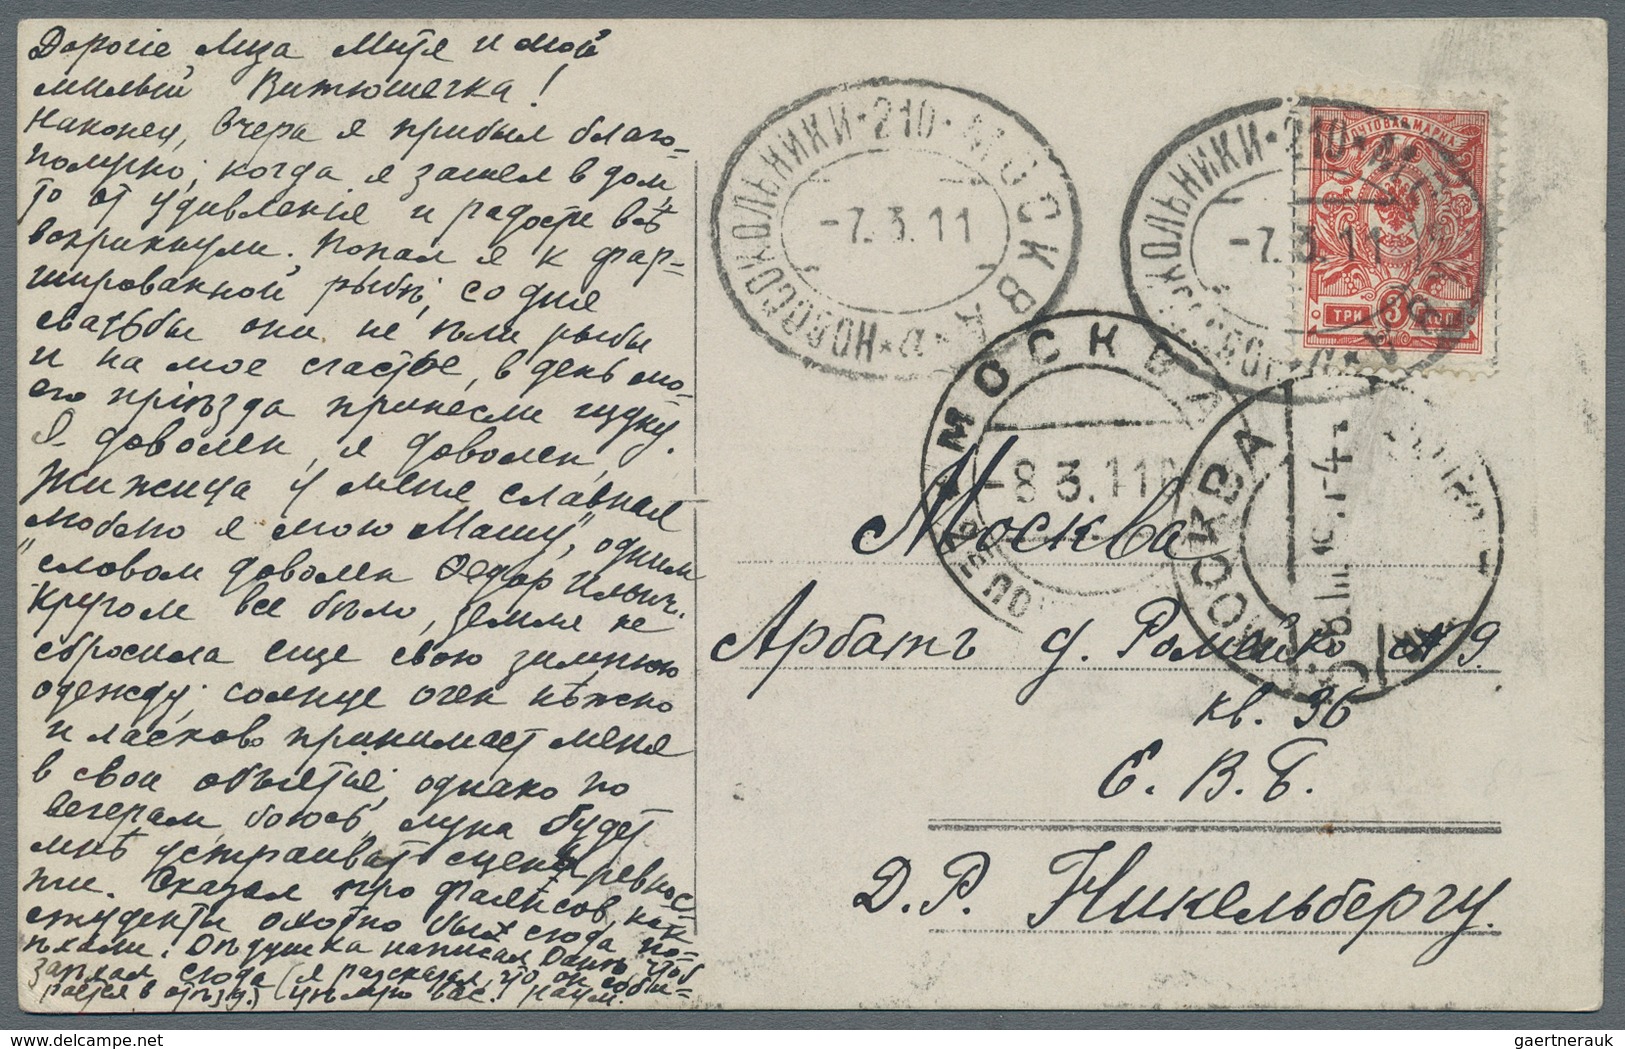 Дорогіе Лиза Митя и мой
милый Витюшечка!
Наконец, вчера я прибыл благо-
получно, когда я зашел в дом,
то от удивленія и радости всѣ
вскрикнули. Попал я к фар-
шированной рыбѣ, со дня
свадьбы они не ѣли рыбы
и на мое счастье, в день мо-
его пріѣзда принесли щуку.
Я доволен, я доволен,
Жижица у меня славная
люблю я мою Машу", одним
"словом доволен Федор Ильич.
Кругом все бѣло, земля не
сбросила еще свою зимнюю
одежду, солнце очен нѣжно
и ласково принимает меня
в свои объятія, однако по
вечерам, боюсь, луна будет
мнѣ устраивать сцены ревнос-
ти. Сказал про
студенты охотно сюда по-
ѣхали. Дѣдушка написал чтоб
сюда (я разсказал, что он соби-
рается в отъѣзд.) Цѣлую вас! Наум.
НОВОСОКОЛЬНИКИ * 210 * МОСКВА * п *
-7.3.11
НОВОСОКОЛЬНИКИ * 210 *
-7.3.11
ПОЧТОВАЯ МАРКА
ТРИ 3 КОП
МОСКВА
-8 3.11
МОСКВА
Москва
Арбатъ д. Ромейко № 9.
кв. 36
Е. В. Б.
Д. Р. Никельбергу.
gaertnerauk